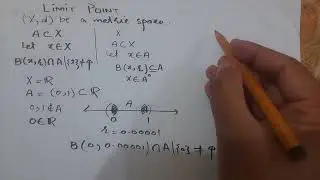 LIMIT POINT
(X,d) be a metric space.
A⊂X
Let x∈X
B(x,r)∩A≠φ
X
A⊂X
x∈A
B(x,r)⊆A
x∈A°
X=ℝ
A=(0,1)⊂ℝ
0,1∉A
0∈ℝ
A
0 1
r=0.00001
B(0,0.00001)∩A|{0}≠φ